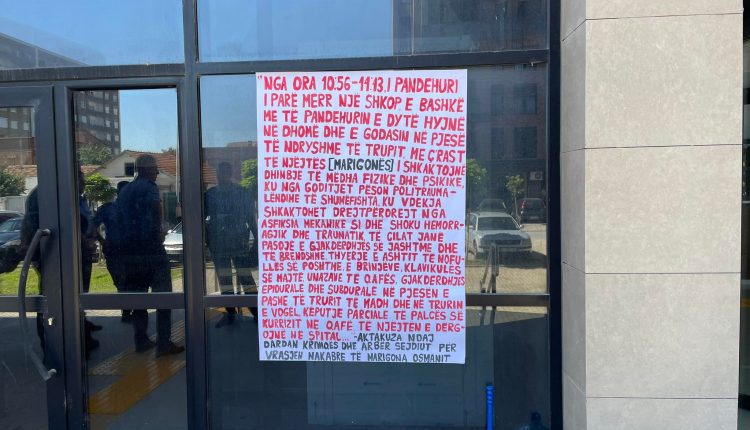 "NGA ORA 10:56-11:13, I PANDEHURI
I PARË MERR NJË SHKOP, E BASHKË
ME TË PANDEHURIN E DYTË HYJNË
NË DHOMË DHE E GODASIN NË PJESË
TË NDRYSHME TË TRUPIT, ME ÇRAST
TË NJËJTËS [MARIGONËS] I SHKAKTOJNË
DHIMBJE TË MËDHA FIZIKE DHE PSIKIKE,
KU NGA GODITJET PËSON POLITRAUMA-
LËNDIME TË SHUMËFISHTA, KU VDEKJA
SHKAKTOHET DREJTPËRDREJT NGA
ASFIKSIA MEKANIKE SI DHE SHOKU HEMORR-
AGJIK DHE TRAUMATIK, TË CILAT JANË
PASOJË E GJAKDERDHJES SË JASHTME DHE
TË BRENDSHME, THYERJE E ASHTIT TË NOFU-
LLËS SË POSHTME, E BRINJËVE, KLAVIKULËS
SË MAJTË, UNAZAVE TË QAFËS, GJAKDERDHJES
EPIDURALE DHE SUBDURALE NË PJESËN E
PASME TË TRURIT TË MADH DHE NË TRURIN
E VOGËL, KËPUTJE PARCIALE TË PALCËS SË
KURRIZIT NË QAFË, TË NJËJTËN E DËRG-
OJNË NË SPITAL... -AKTAKUZA NDAJ
DARDAN KRIVAQËS DHE ARBËR SEJDIUT PËR
VRASJEN MAKABRE TË MARIGONA OSMANIT